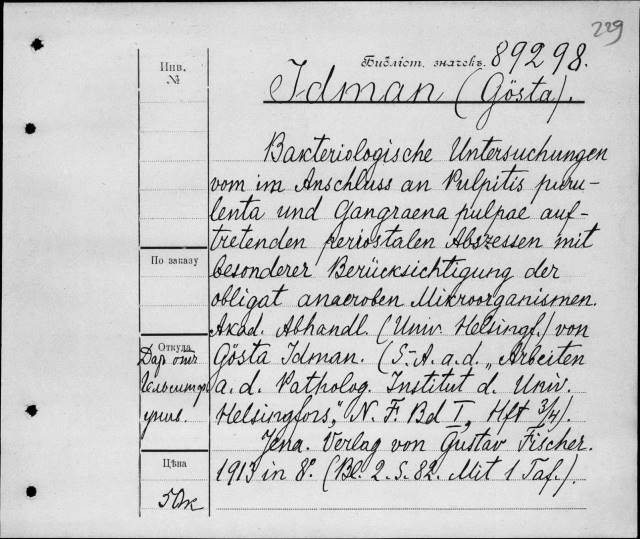 229
Инв.
№
Библіот. значекъ. 89298.
Idman (Gösta).
Bakteriologische Untersuchungen
vom im Anschluss an Pulpitis puru-
lenta und Gangraena pulpae auf-
tretenden periostalen Abszessen mit
besonderer Berücksichtigung der
obligat anaeroben Mikroorganismen.
Akad. Abhandl. (Univ. Helsingf.) von
Gösta Idman. (S.-A. a. d. „Arbeiten
a. d. Patholog. Institut d. Univ.
Helsingfors", N. F. Bd I, Hft 3/4)
Jena. Verlag von Gustav Fischer.
1913 in 8°. (Bl. 2. S. 82. Mit 1 Taf.).
По заказу
Откуда
Дар отъ
Гельсингф.
унив.
Цѣна